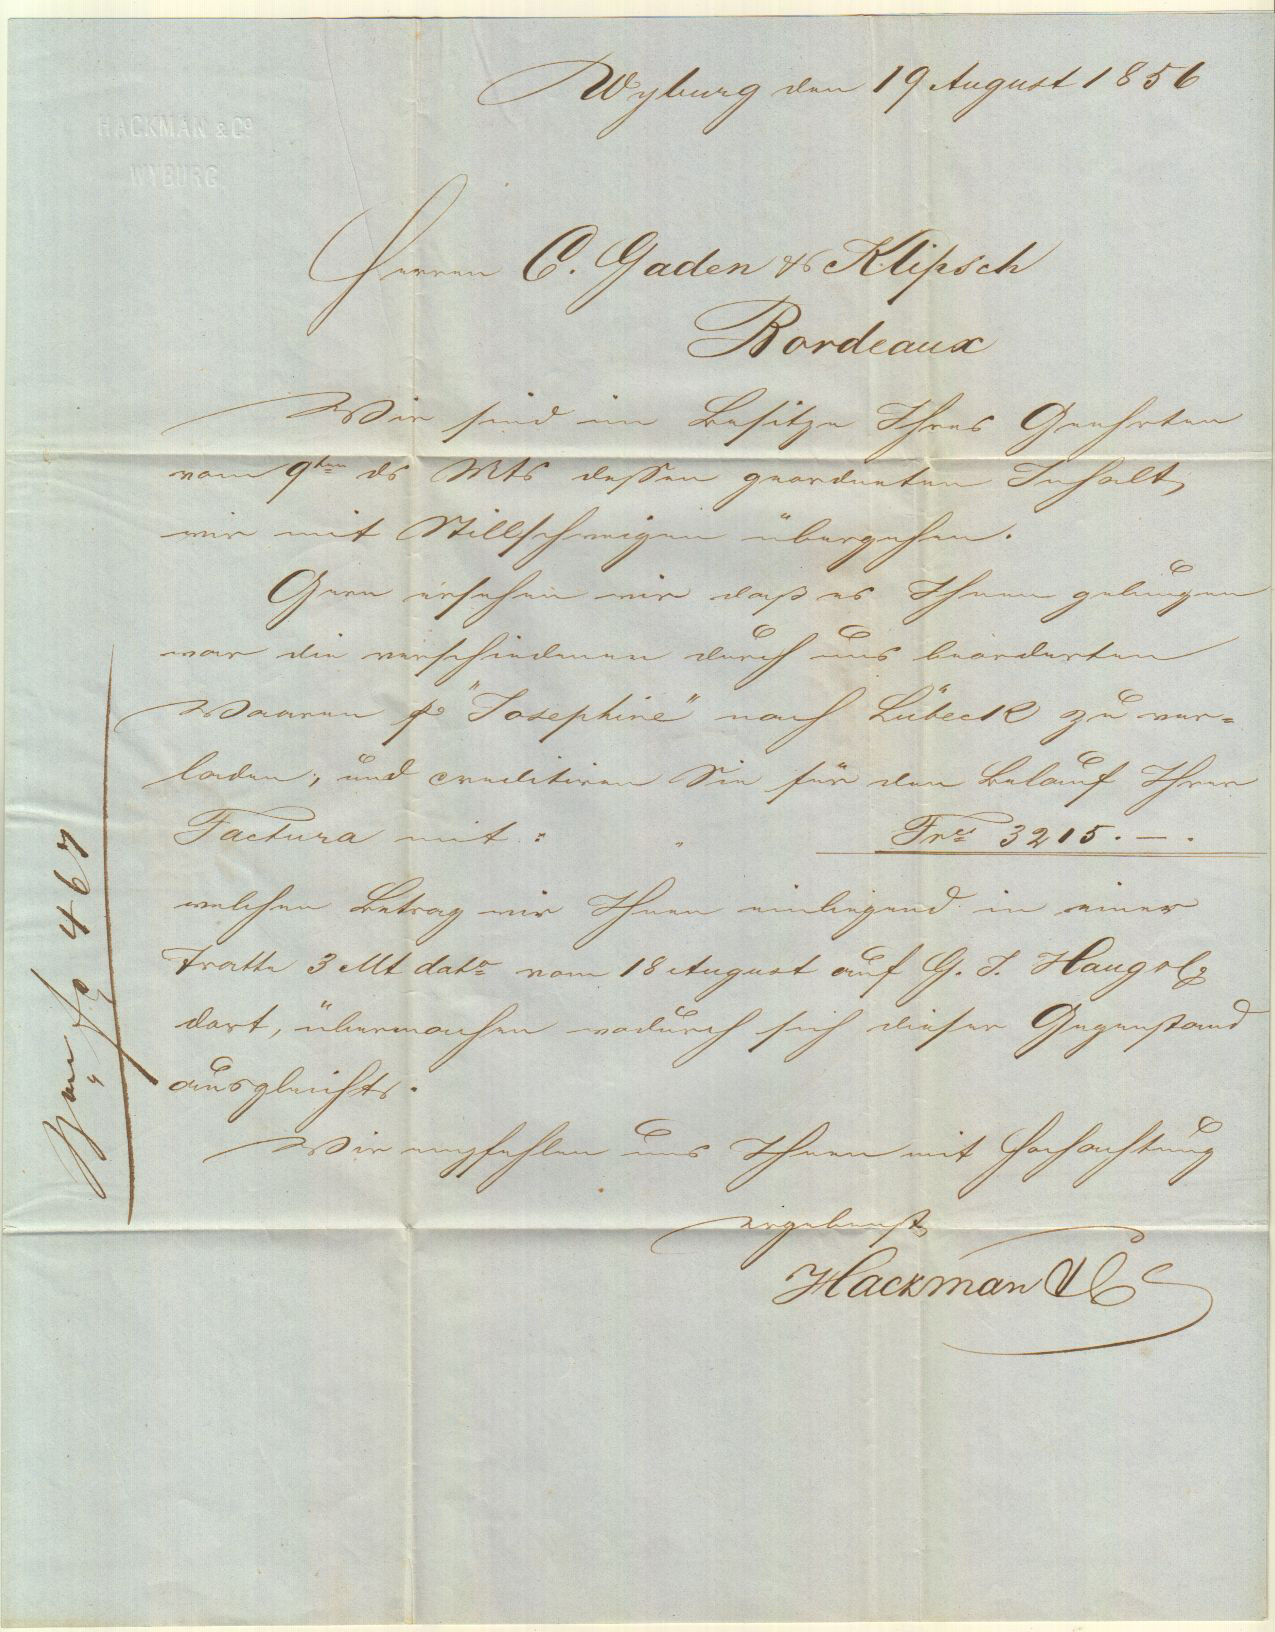 HACKMAN & Co
WYBURG
Wyburg den 19 August 1856
Herren C. Gaden & Klipsch
Bordeaux
Wir sind im Besitze Ihres Geehrten
vom 9ten ds Mts dessen geordneten Inhalt
wir mit Stillschweigen übergehen.
Gern ersehen wir daß es Ihnen gelungen
war die verschiedenen durch uns beorderten
Waaren p "Josephine" nach Lübeck zu ver=
laden, und creditiren Sie für den Belauf Ihrer
Factura mit : " Frcs 3215. — .
welchen Betrag wir Ihnen einliegend in einer
Tratte 3 Mt dato vom 18 August auf G. J.
dort, übermachen wodurch sich dieser Gegenstand
ausgleicht.
Wir empfehlen uns Ihnen mit Hochachtung
ergebenst
Hackman & Co
467